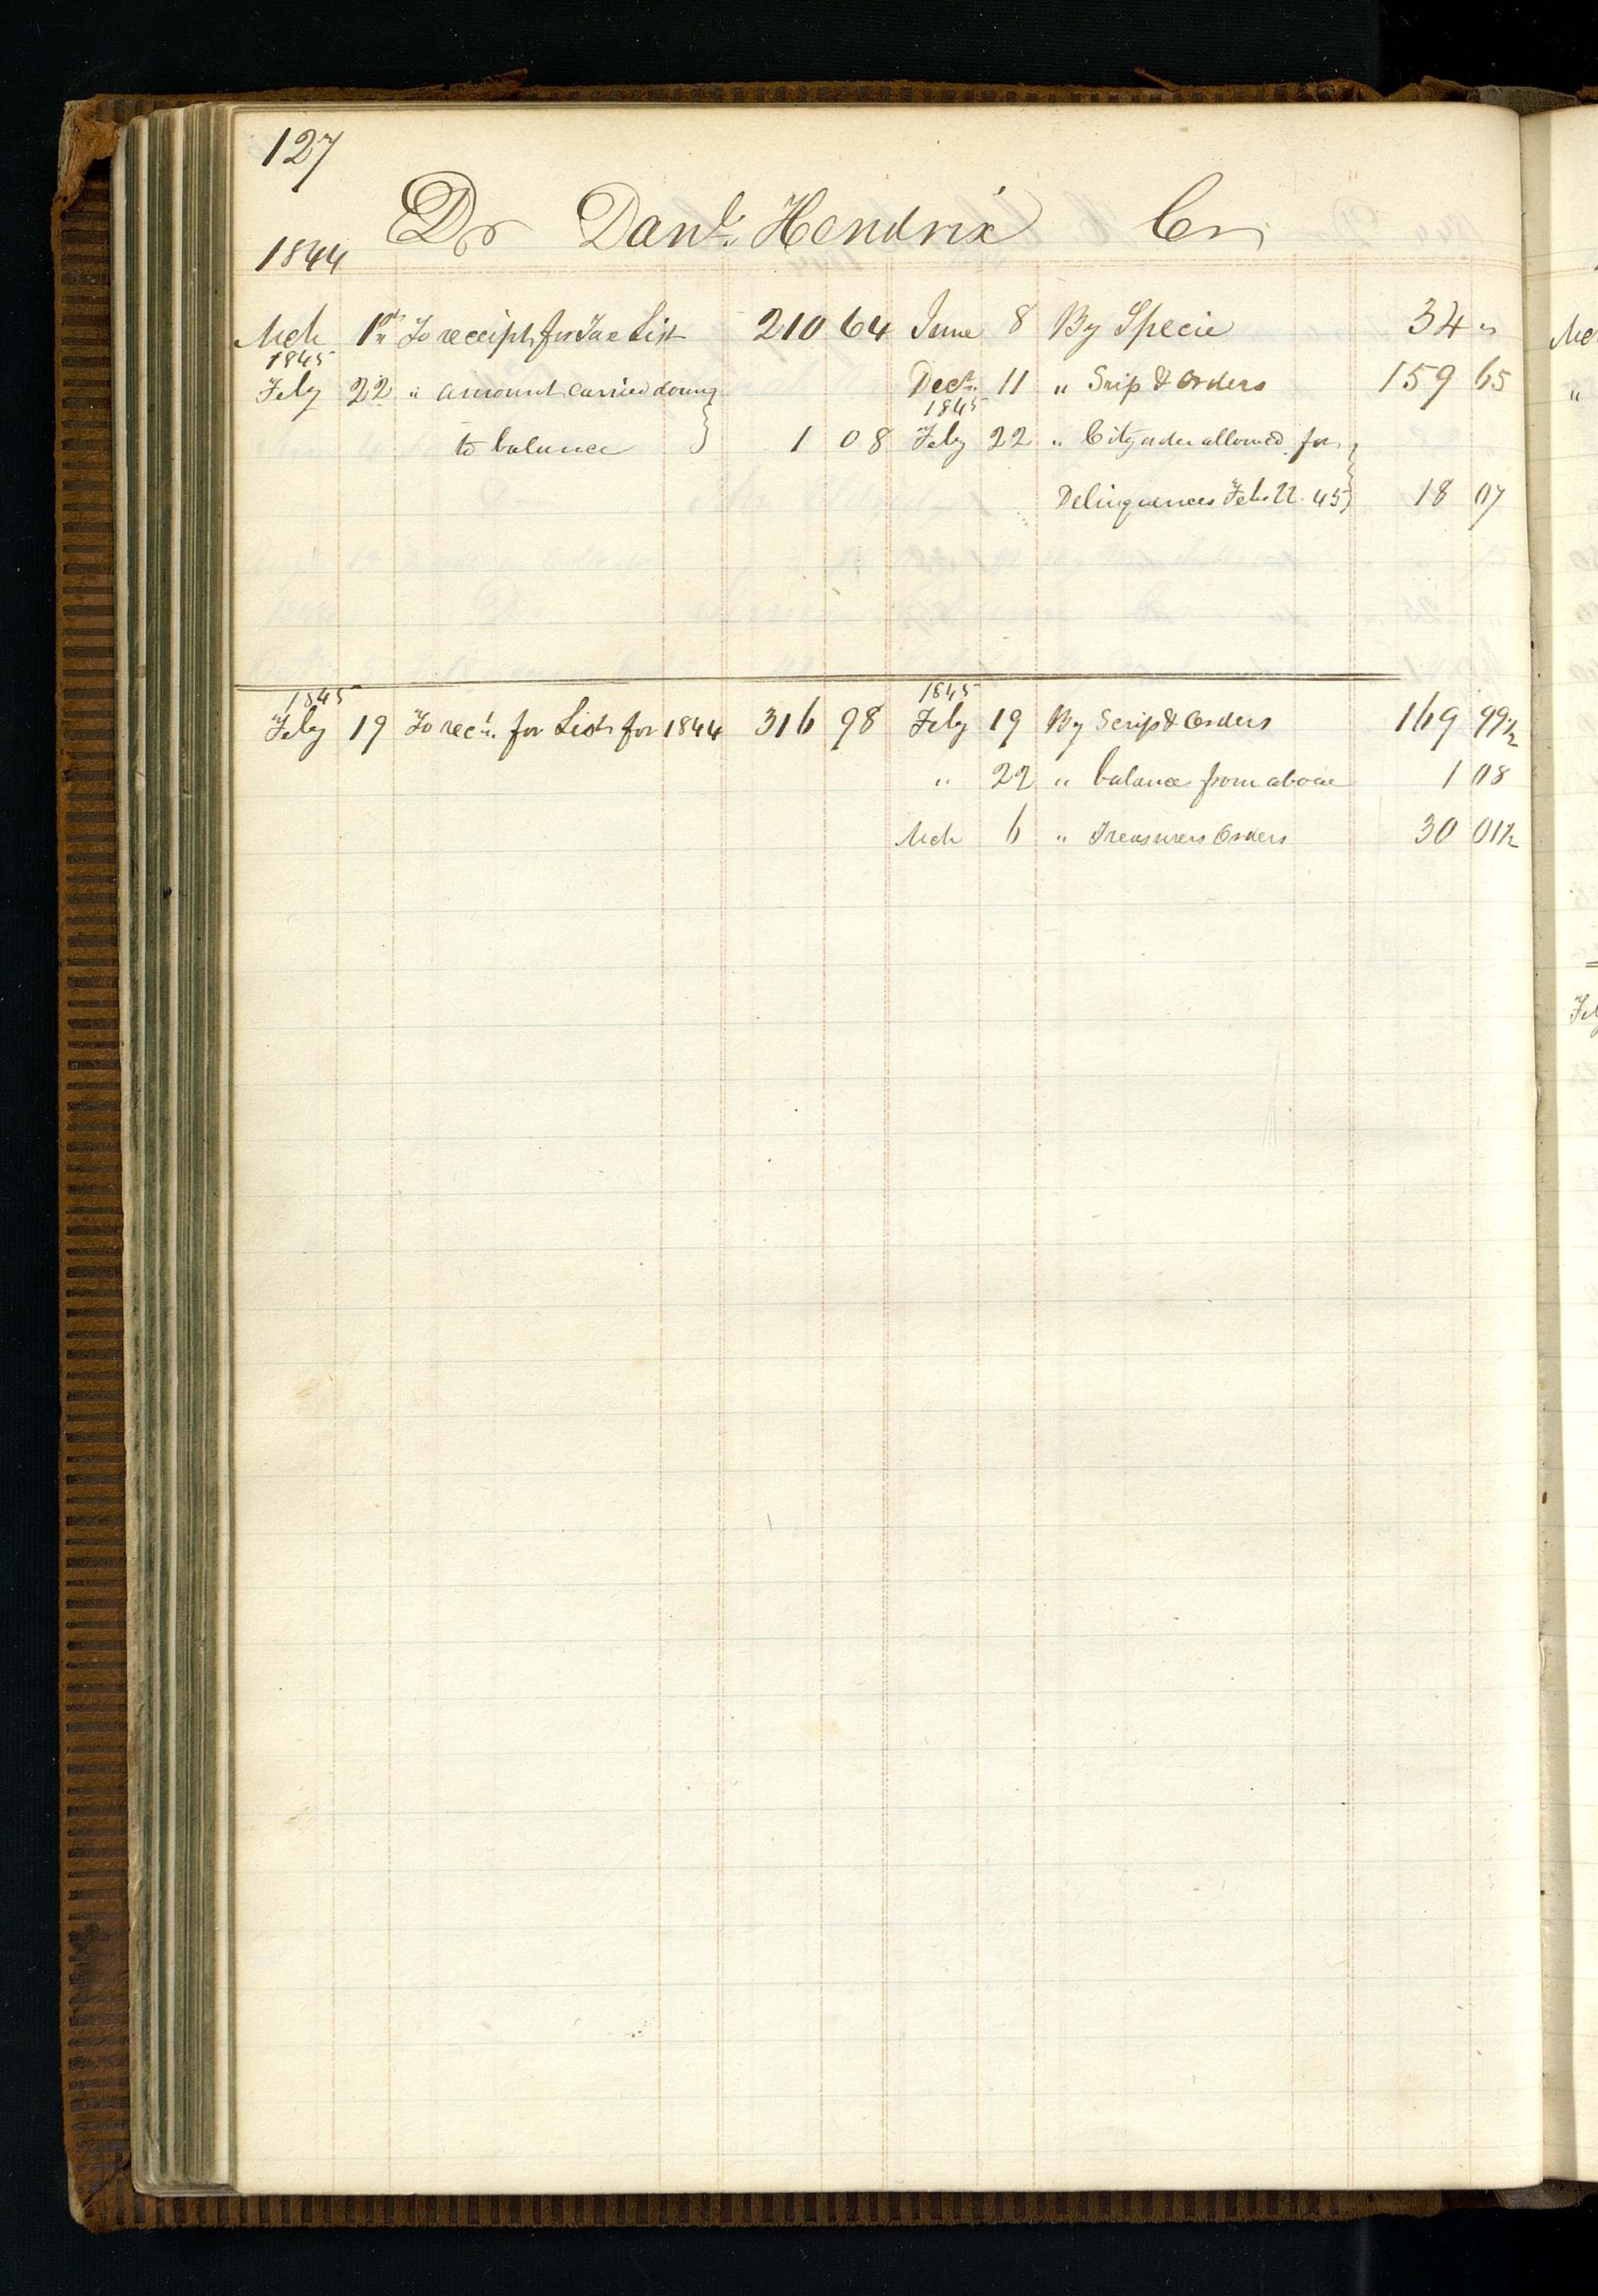 127
Dr Danl. Hendrix Cr
1844
Mch 1st To receipt for Tax List 210 64 June 8 By Specie 34 "
1845
Feby 22 " amount carried down Decr. 11 " Srip & Orders 159 65
1845
to balance 1 08 Feby 22 " City order allowed for
Delinquences Feb 22. 45 18 07
1845 1845
Feby 19 To rect. for List for 1844 316 98 Feby 19 By Scrip & Orders 169 99½
" 22 " balance from above 1 08
Mch 6 " Treasurers Orders 30 01½
Mch
"
Feby